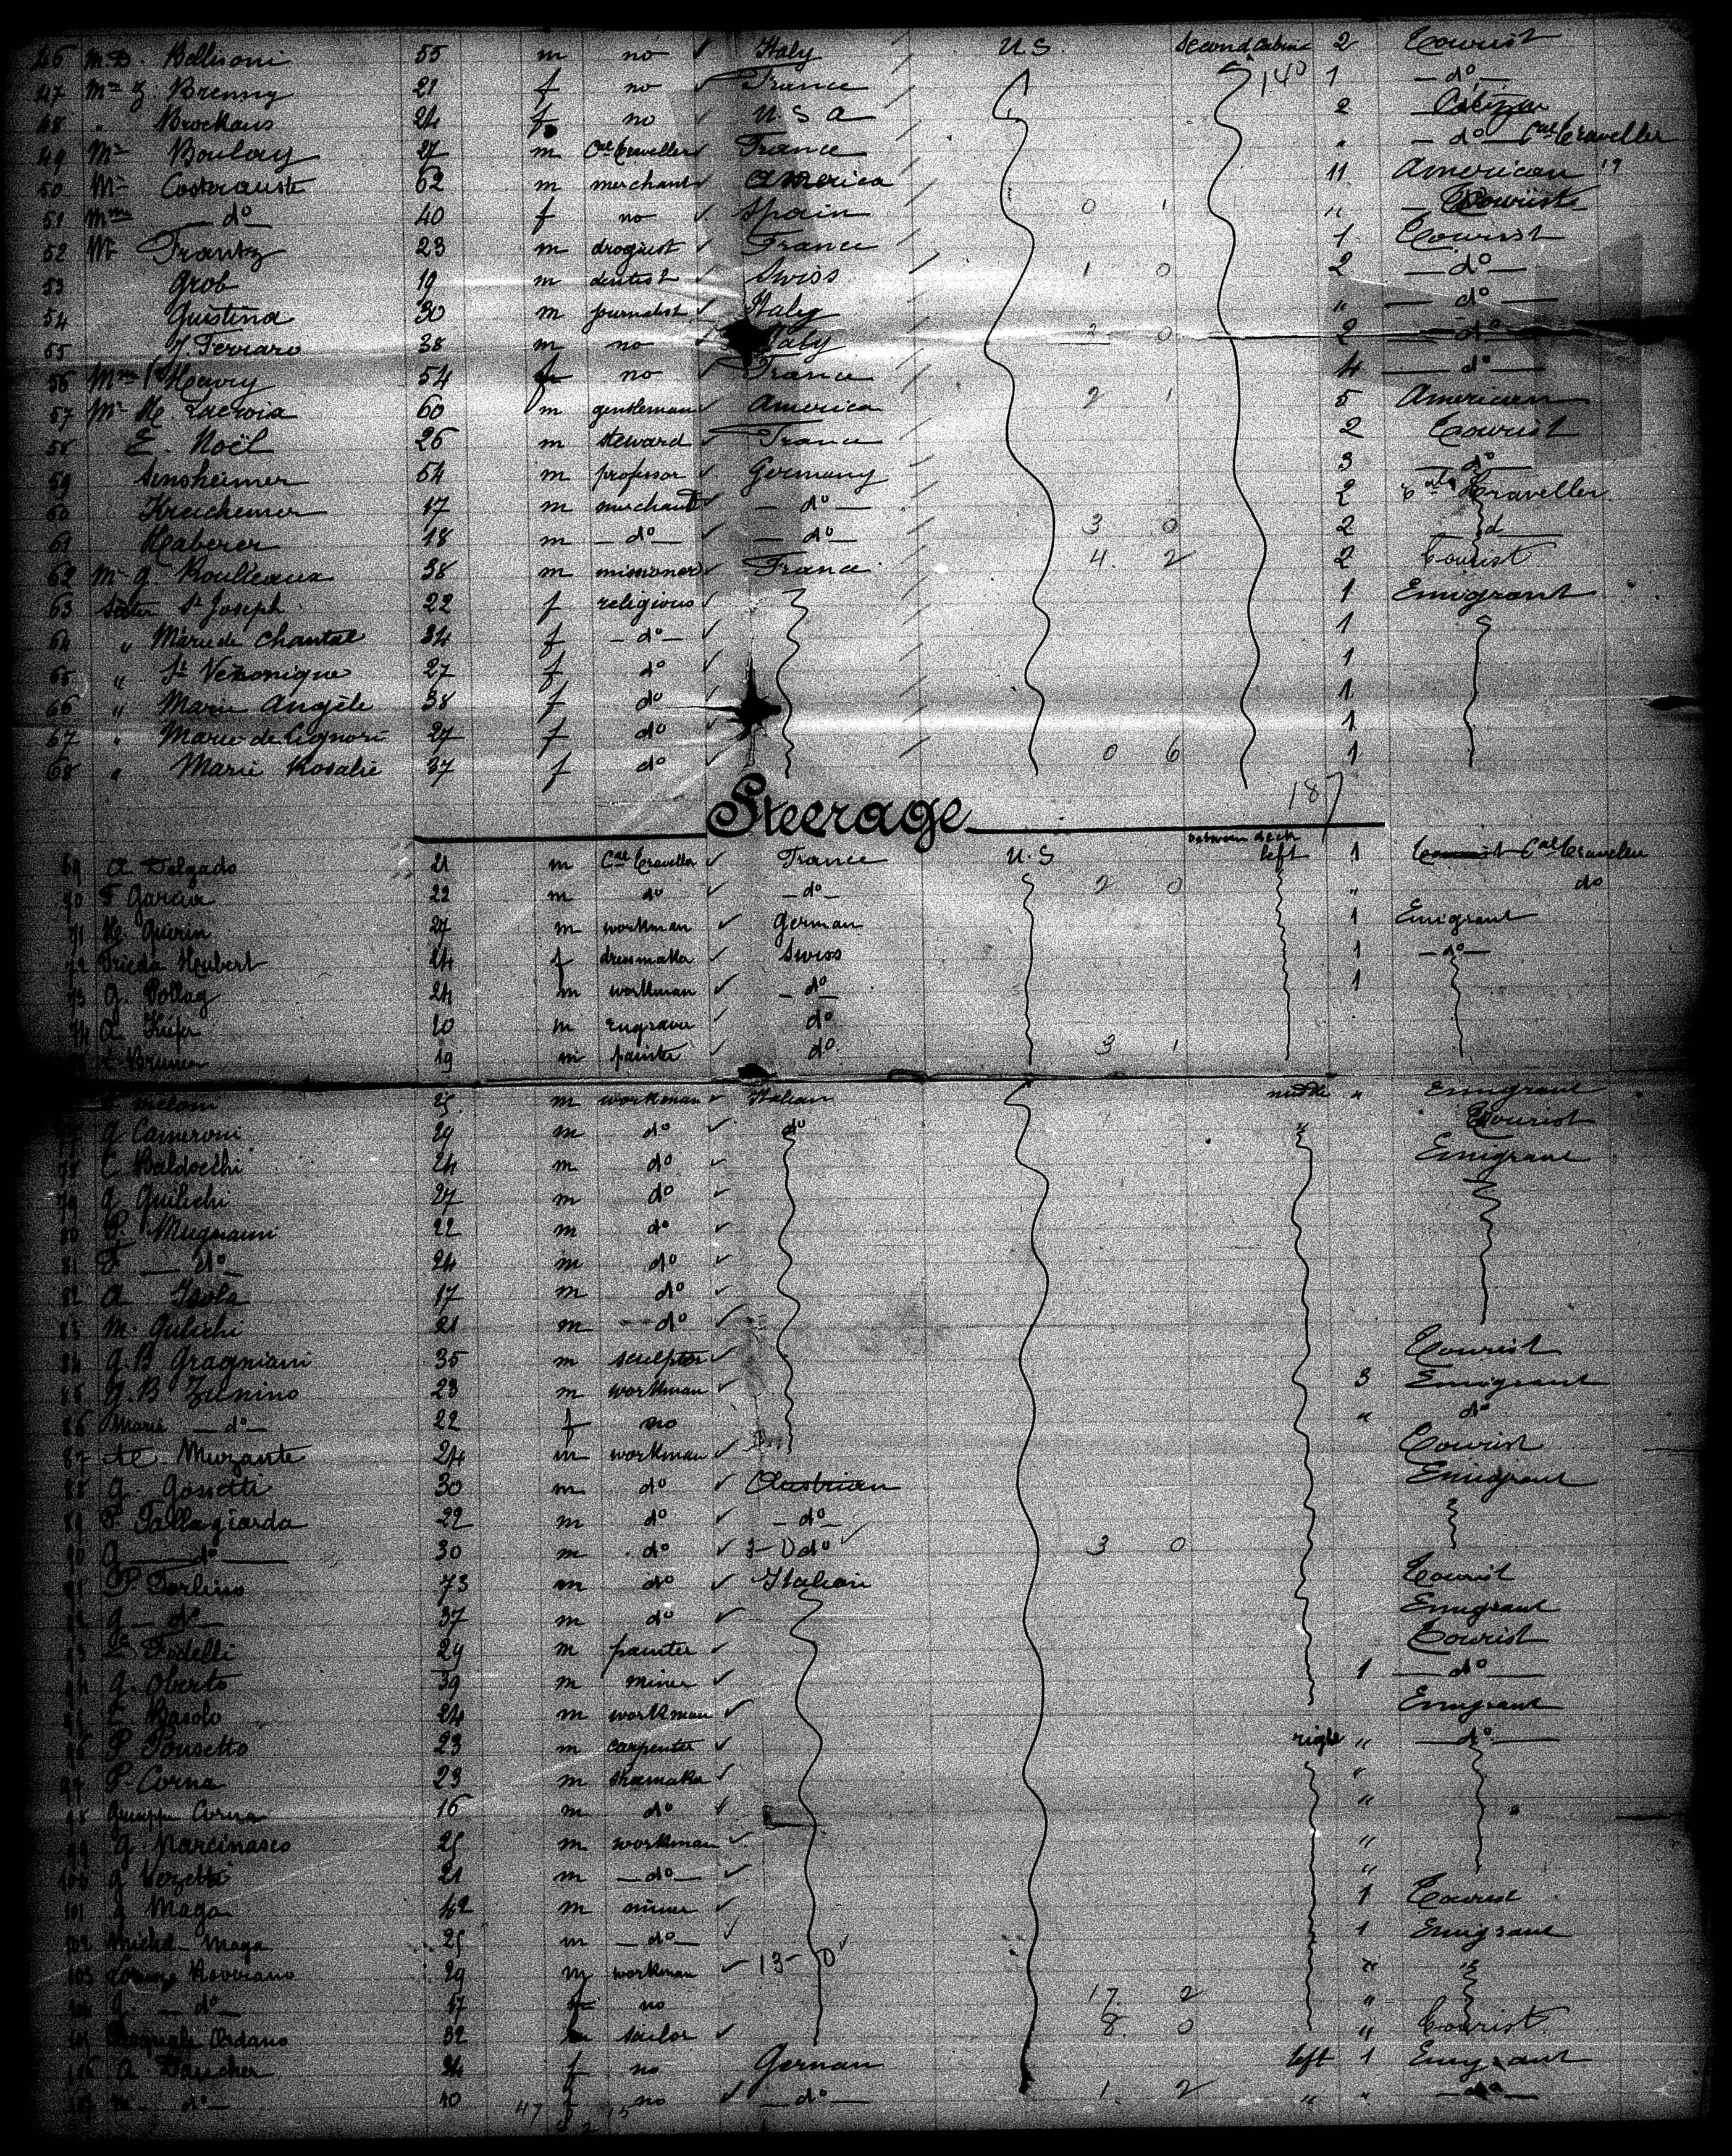 46 Mr D. Bellisoni 55 m no ✓ Italy U.S. Second Cabine 2 Tourist
47 Mme J. Brenny 21 f no ✓ France 140 1 — do —
48 " Brockaus 24 f no ✓ U.S.A 2 Citizen
49 Mr Boulay 27 m Cal Traveller ✓ France " — do — Cal Traveller
50 Mr 62 m merchant ✓ America 11 American
51 Mme — do 40 f no ✓ Spain 0 1 " Tourist
52 Mr Frantz 23 m droguist ✓ France 1 Tourist
53 Grob 19 m dentist ✓ Swiss 1 0 2 — do —
54 Guistina 30 m journalist ✓ Italy " — do —
55 J. Ferraro 38 m no ✓ Italy 2 0 2 — do —
56 Mme Heavry 54 f no ✓ France 4 — do —
57 Mr H. Lacroix 60 m gentleman ✓ America 2 1 5 American
58 E. Noël 26 m steward ✓ France 2 Tourist
59 Sensheimer 54 m professor ✓ Germany 3 — do —
60 17 m merchant ✓ — do — 2 Traveller
61 Haberer 18 m — do — — do — 3 0 2 d
62 Mr G. Roulleaux 38 m missioner ✓ France 4 2 2 Tourist
63 Sister St Joseph 22 f religious ✓ 1 Emigrant
64 " Marie de Chantal 34 f — do — ✓ 1
65 " St Veronique 27 f do ✓ 1
66 " Marie Angèle 38 f do 1
67 " Marie de Lignori 27 f do 1
68 " Marie Rosalie 37 f do 0 6 1
187
Steerage
between deck
69 A Delgado 21 m Cal Traveller ✓ France U.S left 1 Tourist Cal Traveller
70 F Garcia 22 m do ✓ — do — 2 0 " do
71 H. Guerin 27 m workman ✓ German 1 Emigrant
72 Frieda Heubert 24 f dressmaker ✓ Swiss 1 — do —
73 G. Pollag 24 m workman ✓ — do — 1
74 A Kiefer m engraver ✓ do
Bruner 19 m painter ✓ do 3 1
Meloni m workman ✓ Italian middle " Emigrant
G Cameroni 29 m do ✓ do Tourist
78 C Baldocchi 24 m do ✓ Emigrant
79 G Guilichi 27 m do ✓
80 P. Mugnaini 22 m do ✓
81 F — do — 24 m do ✓
82 A Isola 17 m do ✓
83 M. Gulichi 21 m do ✓
84 G.B Gragniani 35 m sculptor ✓ Tourist
85 G.B Zunino 23 m workman ✓ 3 Emigrant
86 Maria — do — 22 f no " do
87 Al. Murzante 24 m workman ✓ Tourist
88 G. Gossetti 30 m do ✓ Austrian Emigrant
89 P Tallagiarda 22 m do ✓ — do —
90 G — do — 30 m do ✓ 3-0 do ✓ 3 0
91 P. Torlino 73 m do ✓ Italian Tourist
92 G — do — 37 m do ✓ Emigrant
93 Fidelli 29 m painter ✓ Tourist
94 G. Oberto 39 m miner ✓ 1 — do —
95 Basolo 24 m workman ✓ Emigrant
96 P Ponsetto 23 m carpenter ✓ right " — do —
97 P. Corna 23 m shoemaker ✓ "
98 Giuseppe Corna 16 m do ✓ "
99 G. Marcinasco m workman ✓ "
100 G Vozetti 21 m — do — ✓ "
101 Maga 42 m miner ✓ 1 Tourist
102 Michel Maga m — do — ✓ 1 Emigrant
103 Roverano 29 m workman ✓ 13-0 ✓ " "
104 — do — 17 f no 17 2 "
105 Ordano 32 m sailor ✓ 8 0 " Tourist
106 A. Daucher 24 f no German left 1 Emigrant
— do — 10 f no ✓ — do — 1 2 " " — do —
47